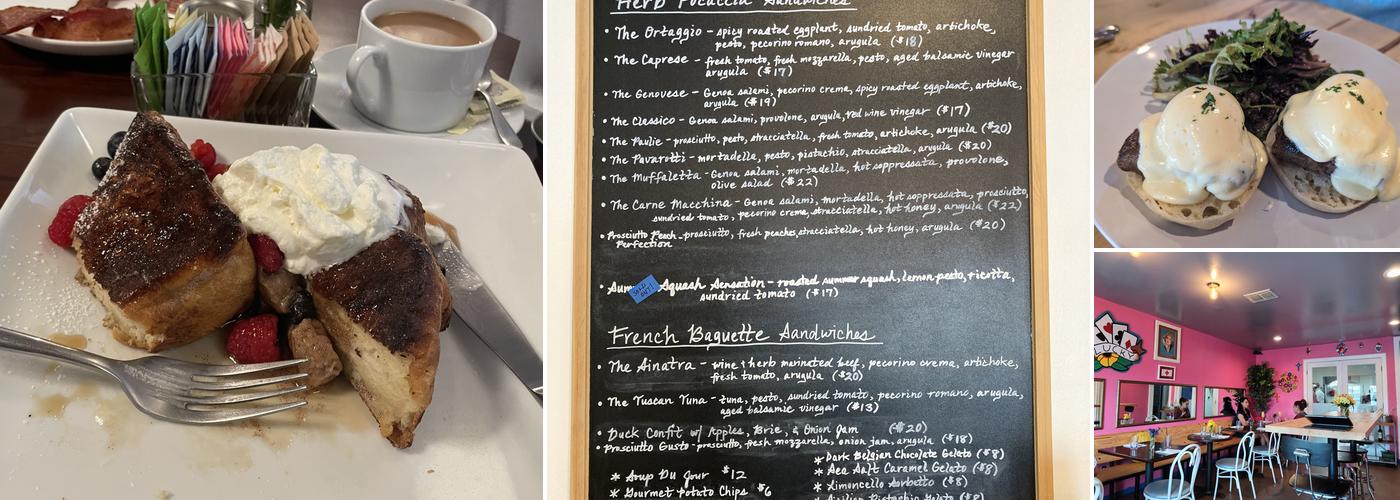 Herb Focaccia Sandwiches
• The Ortaggio - spicy roasted eggplant, sundried tomato, artichoke,
pesto, pecorino romano, arugula ($18)
• The Caprese - fresh tomato, fresh mozzarella, pesto, aged balsamic vinegar
arugula ($17)
• The Genovese - Genoa salami, pecorino crema, spicy roasted eggplant, artichoke,
arugula ($19)
• The Classico - Genoa salami, provolone, arugula, red wine vinegar ($17)
• The Paulie - prosciutto, pesto, stracciatella, fresh tomato, artichoke, arugula ($20)
• The Pavarotti - mortadella, pesto, pistachio, stracciatella, arugula ($20)
• The Muffaletta - Genoa salami, mortadella, hot soppressata, provolone,
olive salad ($22)
• The Carne Macchina - Genoa salami, mortadella, hot soppressata, prosciutto,
sundried tomato, pecorino crema, stracciatella, hot honey, arugula ($22)
• Prosciutto Peach - prosciutto, fresh peaches, stracciatella, hot honey, arugula ($20)
Perfection
• Sum Squash Sensation - roasted summer squash, lemon pesto, ricotta,
SOLD OUT!
sundried tomato ($17)
French Baguette Sandwiches
• The Ainatra - wine & herb marinated beef, pecorino crema, artichoke,
fresh tomato, arugula ($20)
• The Tuscan Tuna - tuna, pesto, sundried tomato, pecorino romano, arugula,
aged balsamic vinegar ($13)
• Duck Confit w/ Apples, Brie, & Onion Jam ($20)
• Prosciutto Gusto - prosciutto, fresh mozzarella, onion jam, arugula ($18)
* Soup Du Jour $12
* Gourmet Potato Chips $6
* Dark Belgian Chocolate Gelato ($8)
* Sea Salt Caramel Gelato ($8)
* Limoncello Sorbetto ($8)
* Sicilian Pistachio Gelato ($8)
LUCKY